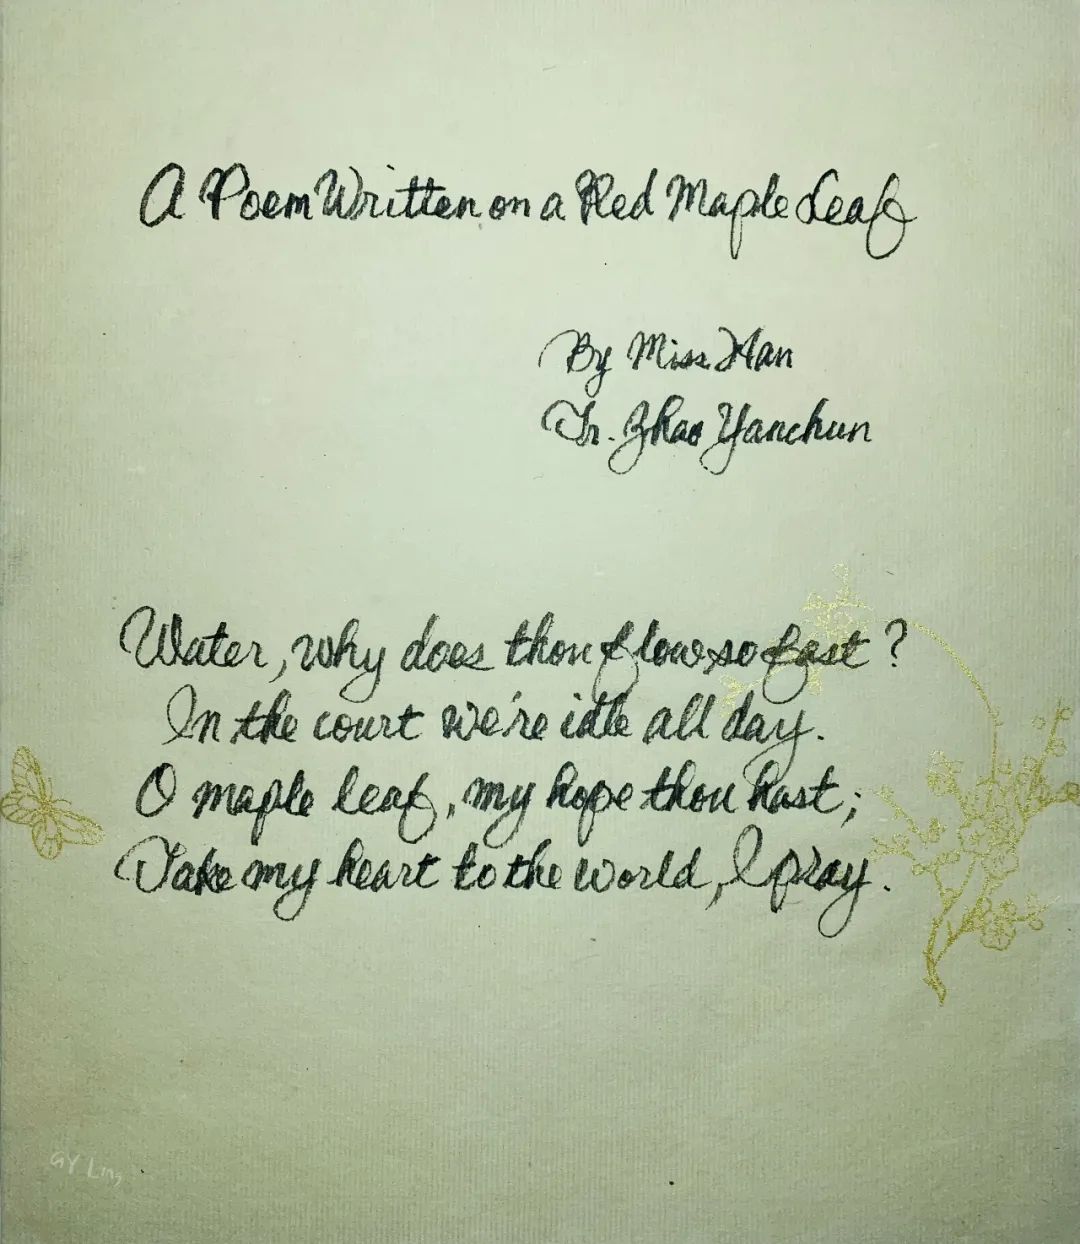 A Poem Written on a Red Maple Leaf
By Miss Han
Tr. Zhao Yanchun
Water, why does thou flow so fast?
In the court we're idle all day.
O maple leaf, my hope thou hast;
Take my heart to the world, I pray.
GY Ling